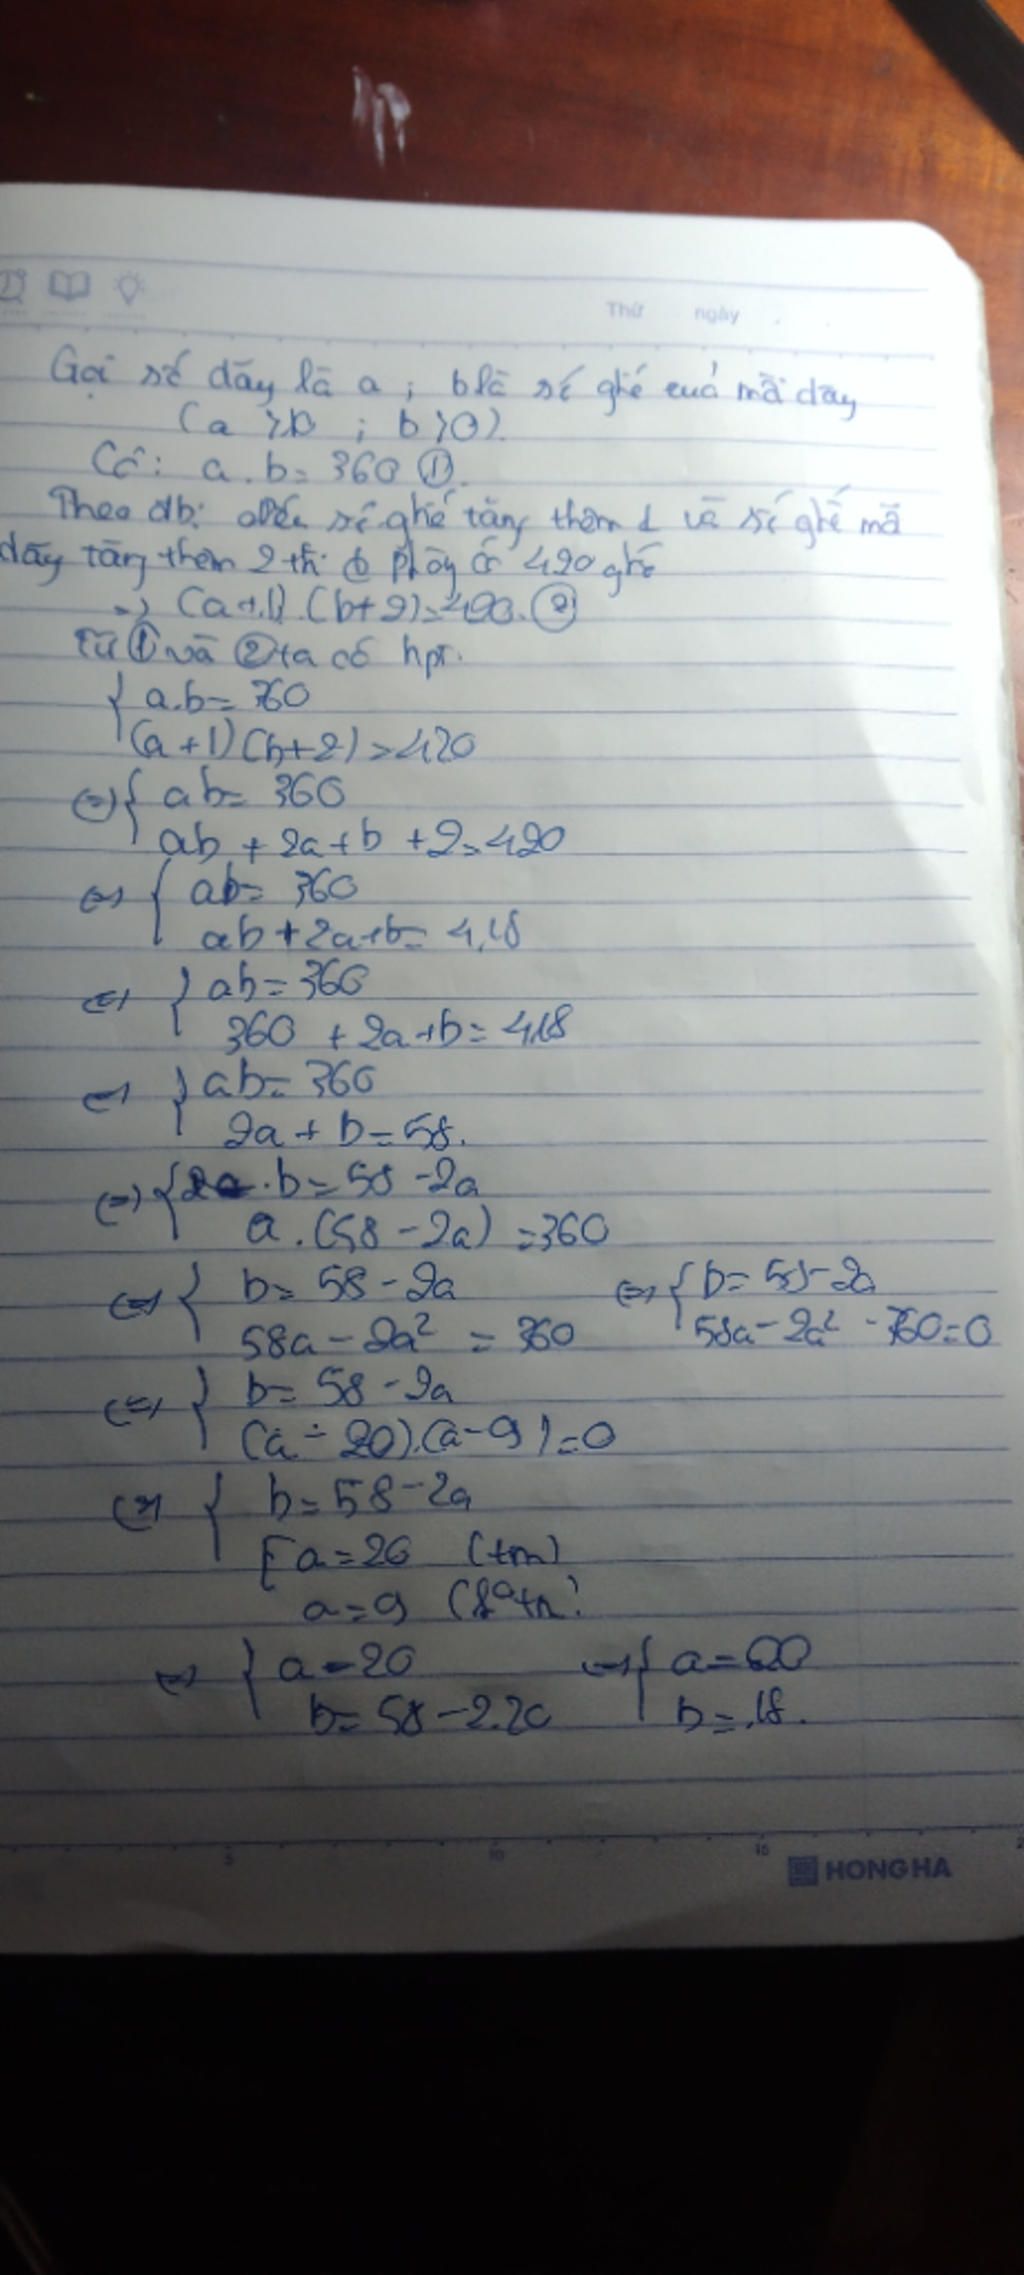 Thứ ngày
Gọi số dãy là a ; b là số ghế của mỗi dãy
(a > 0 ; b > 0).
Có: a.b = 360 ①.
Theo đb: nếu số ghế tăng thêm 1 và số ghế mỗi
dãy tăng thêm 2 th phòng có 420 ghế
=> (a+1).(b+2)=420. ②
Từ ① và ② ta có hpt.
{ a.b = 360
(a+1)(b+2)=420
(=) { ab = 360
ab + 2a + b + 2 = 420
(=) { ab = 360
ab + 2a + b = 418
(=) { ab = 360
360 + 2a + b = 418
(=) { ab = 360
2a + b = 58.
(=) { b = 58 - 2a
a.(58 - 2a) = 360
(=) { b = 58 - 2a (=) { b = 58 - 2a
58a - 2a² = 360 58a - 2a² - 360 = 0
(=) { b = 58 - 2a
(a - 20).(a - 9) = 0
(=) { b = 58 - 2a
[ a = 20 (tm)
a = 9 (
(=) { a = 20 (=) { a = 20
b = 58 - 2.20 b = 18.
5 10 15
HONG HA